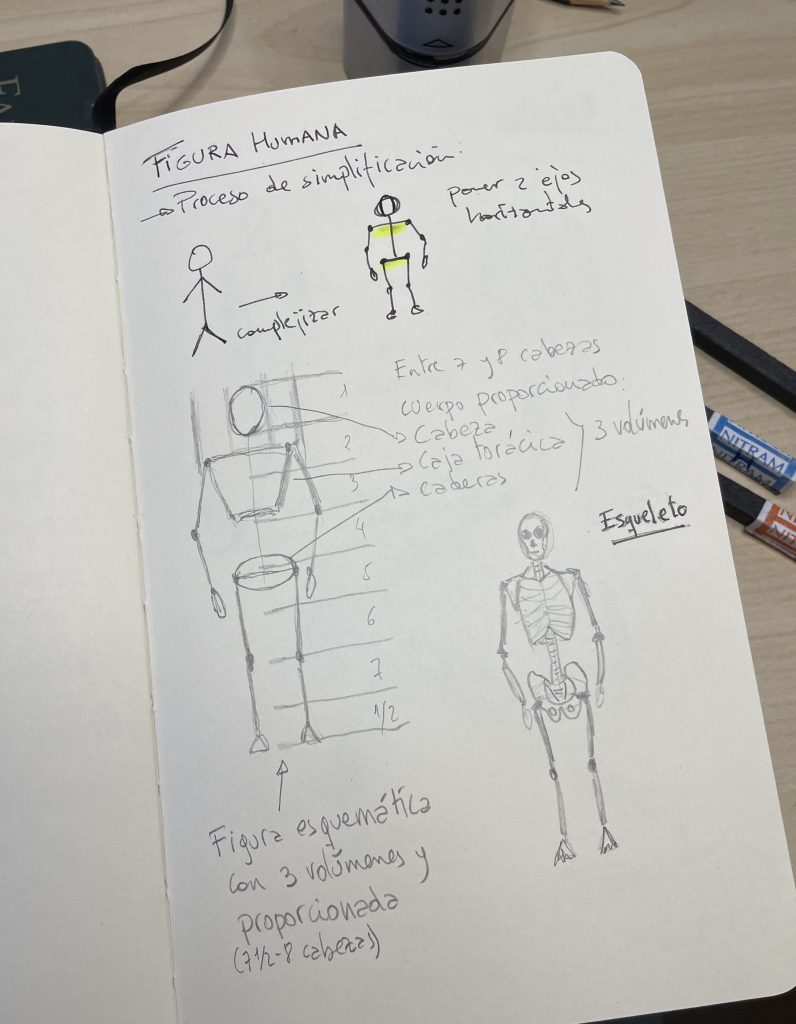 FIGURA HUMANA
→ Proceso de simplificación:
poner 2 ejes
horizontales
complejizar
Entre 7 y 8 cabezas
cuerpo proporcionado:
Cabeza
Caja torácica
caderas
3 volúmenes
1
2
3
4
5
6
7
1/2
Esqueleto
Figura esquemática
con 3 volúmenes y
proporcionada
(7 1/2-8 cabezas)
NITRAM
NITRAM